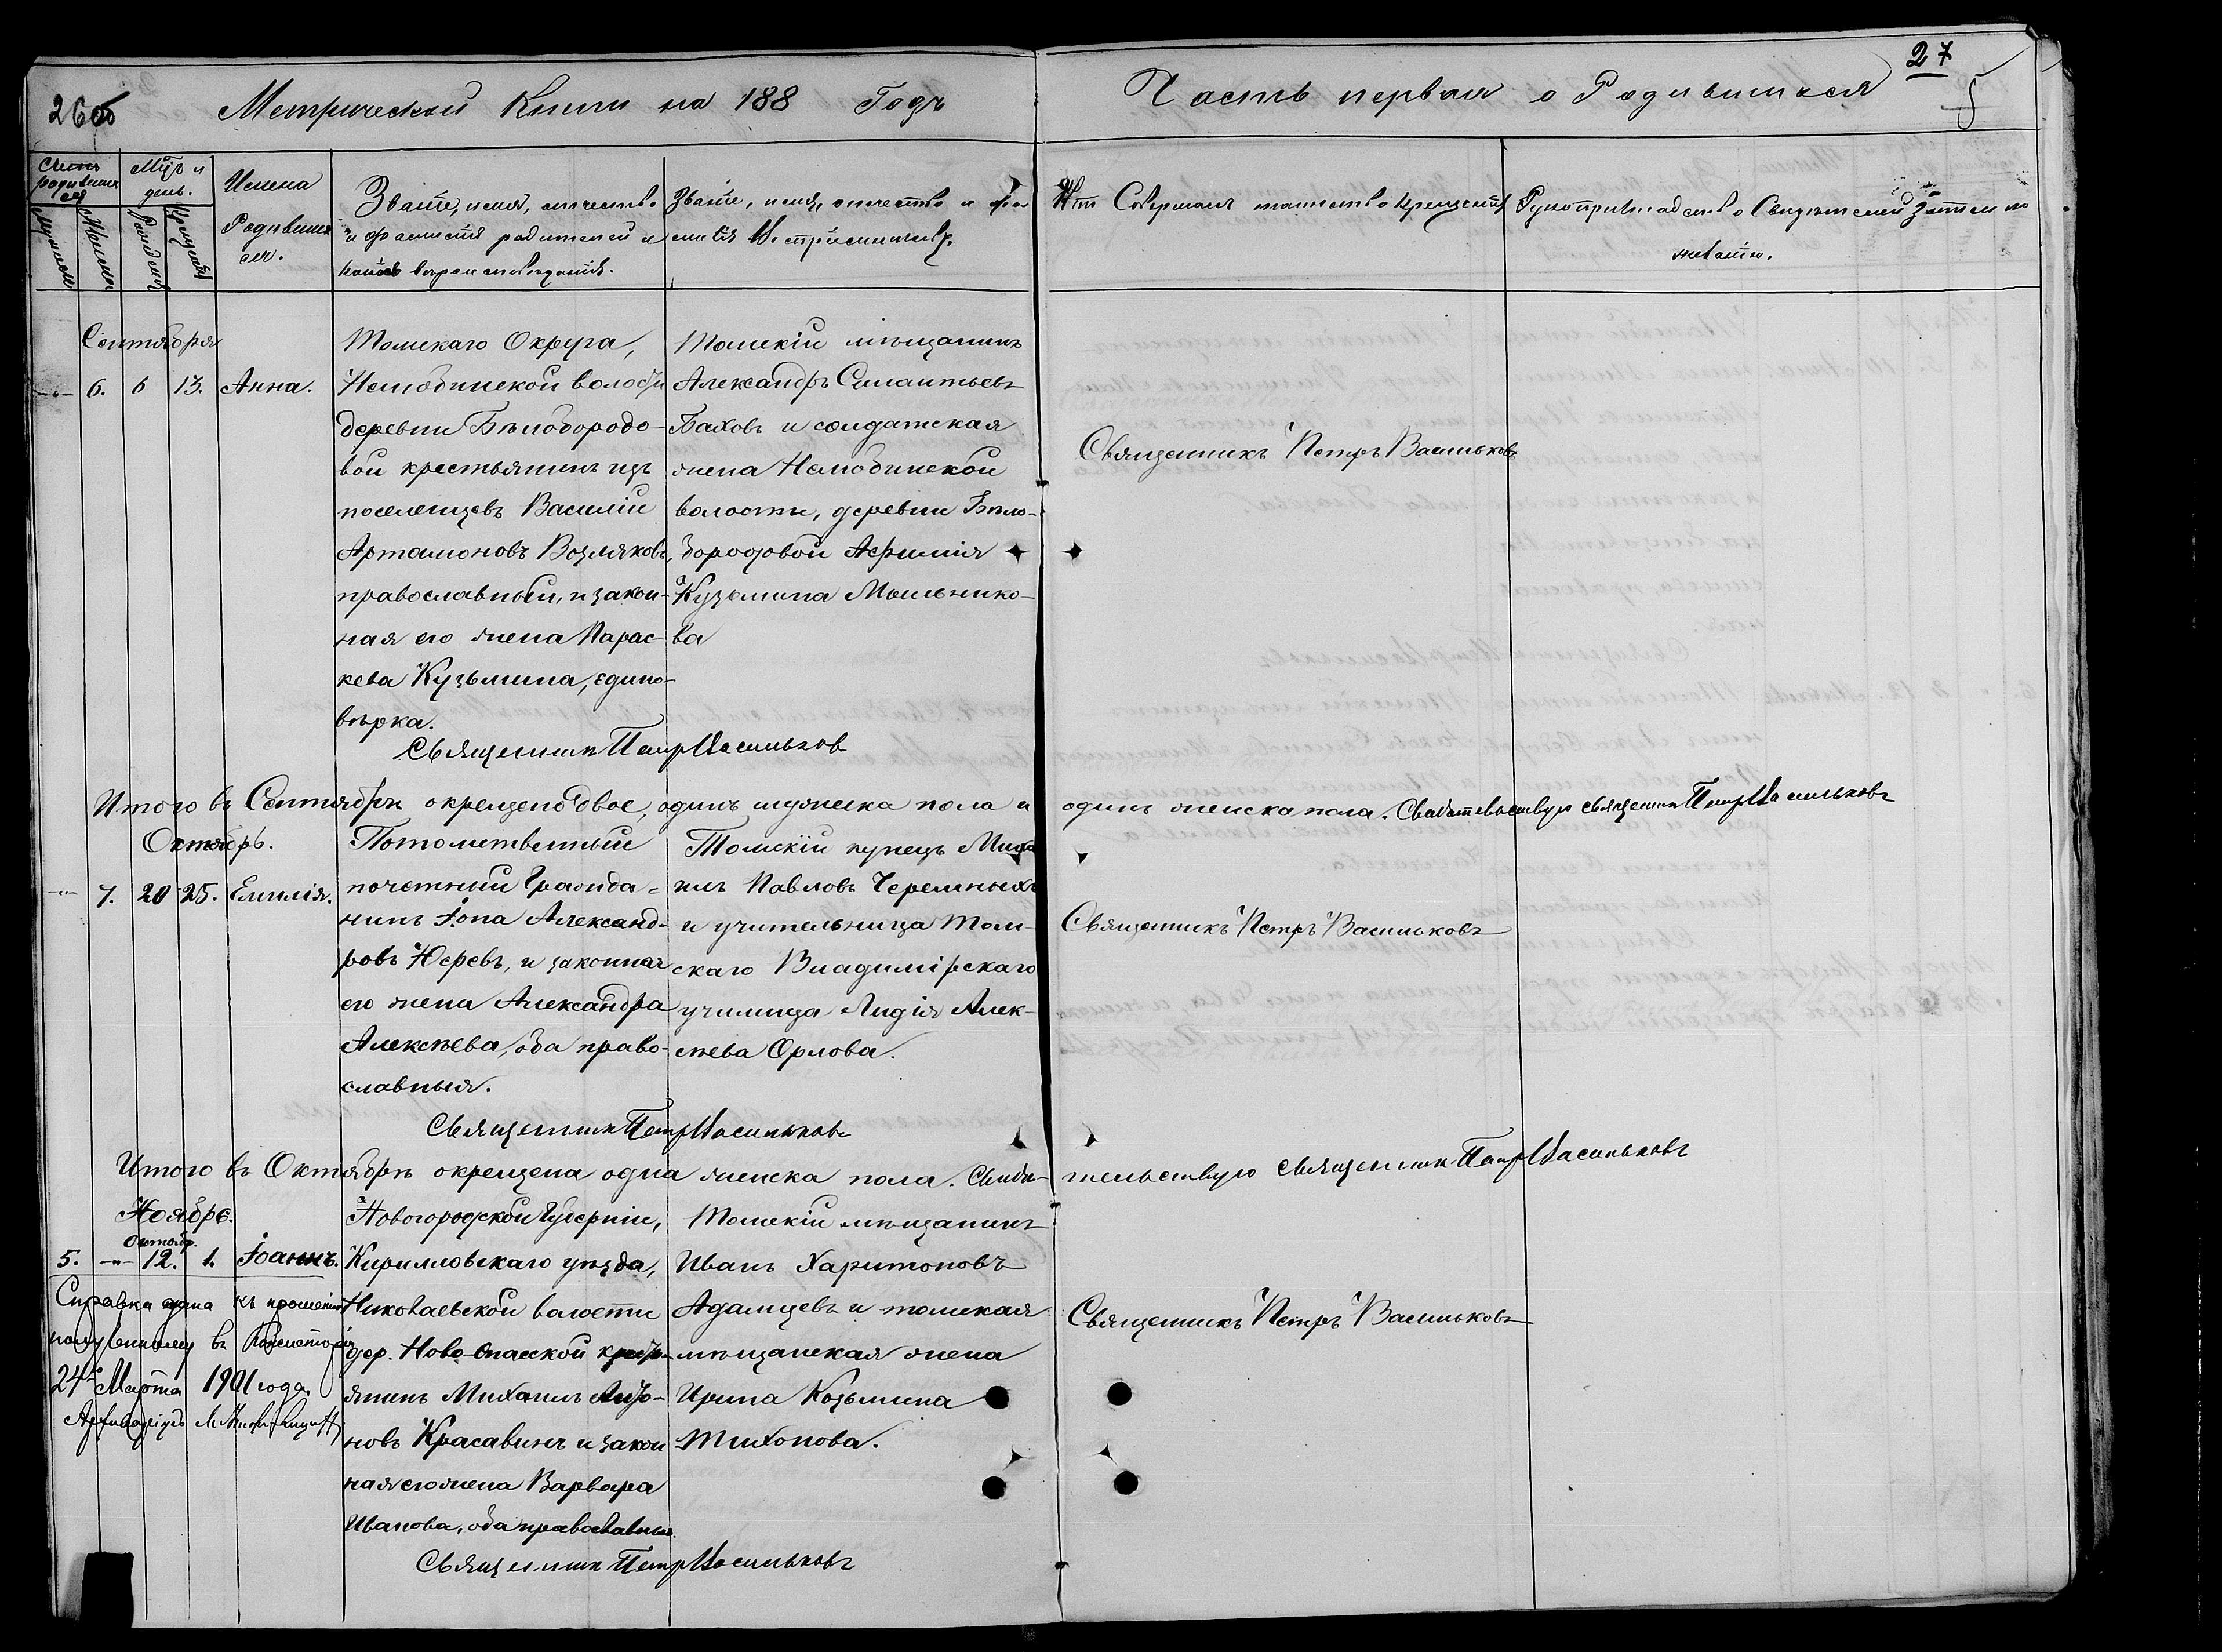 26об
Метрической Книги на 188 Годъ
Счетъ родившихся
Мѣс. и день.
Имена Родившихся.
Званіе, имя, отчество и фамилія родителей и какого вѣроисповѣданія.
Званіе, имя, отчество и фамилія Воспріемниковъ.
Мужска
Женска
Рожденія
Крещенія
Сентября
-"- 6. 6 13. Анна.
Томскаго Округа,
Нелюбинской волости
деревни Бѣлобородо-
вой крестьянинъ изъ
поселенцевъ Василій
Артамоновъ Возляковъ,
православный, и закон-
ная его жена Парас-
кева Кузьмина, едино-
вѣрка.
Томскій мѣщанинъ
Александръ Силантьевъ
Баховъ и солдатская
жена Нелюбинской
волости, деревни Бѣло-
бородовой Афимія
Кузьмина Мыльнико-
ва
Священникъ Петръ Васильковъ
Итого въ Сентябрѣ окрещено двое, одинъ мужска пола и
Октябрь.
-"- 7. 20 25. Емилія.
Потомственный
почетный Гражда-
нинъ Іона Александ-
ровъ Юревъ, и законная
его жена Александра
Алексѣева, оба право-
славныя.
Томскій купецъ Миха
илъ Павловъ Черемныхъ
и учительница Том-
скаго Владимірскаго
училища Лидія Алек-
сѣева Орлова.
Священникъ Петръ Васильковъ
Итого въ Октябрѣ окрещена одна женска пола. Свидѣ-
Ноябрь.
Октобр.
5. -"- 12. 1. Іоаннъ.
Справка дана къ прошенію
полученному въ Консисторіи
24 Марта 1901 года
Архиваріусъ
Новогородской Губерніи,
Кирилловскаго уѣзда,
Николаевской волости
дер. Ново-Спасской кресть-
янинъ Михаилъ
новъ Красавинъ и закон
ная его жена Варвара
Иванова, оба православныя.
Томскій мѣщанинъ
Иванъ Харитоновъ
Адамцевъ и томская
мѣщанская жена
Ирина Козьмина
Тихонова.
Священникъ Петръ Васильковъ
27
5
Часть первая о Родившихся
Кто Совершалъ таинство крещенія
Рукоприкладство Свидѣтелей записи по желанію.
Священникъ Петръ Васильковъ
одинъ женска пола. Свидѣтельствую священникъ Петръ Васильковъ
Священникъ Петръ Васильковъ
тельствую священникъ Петръ Васильковъ
Священникъ Петръ Васильковъ